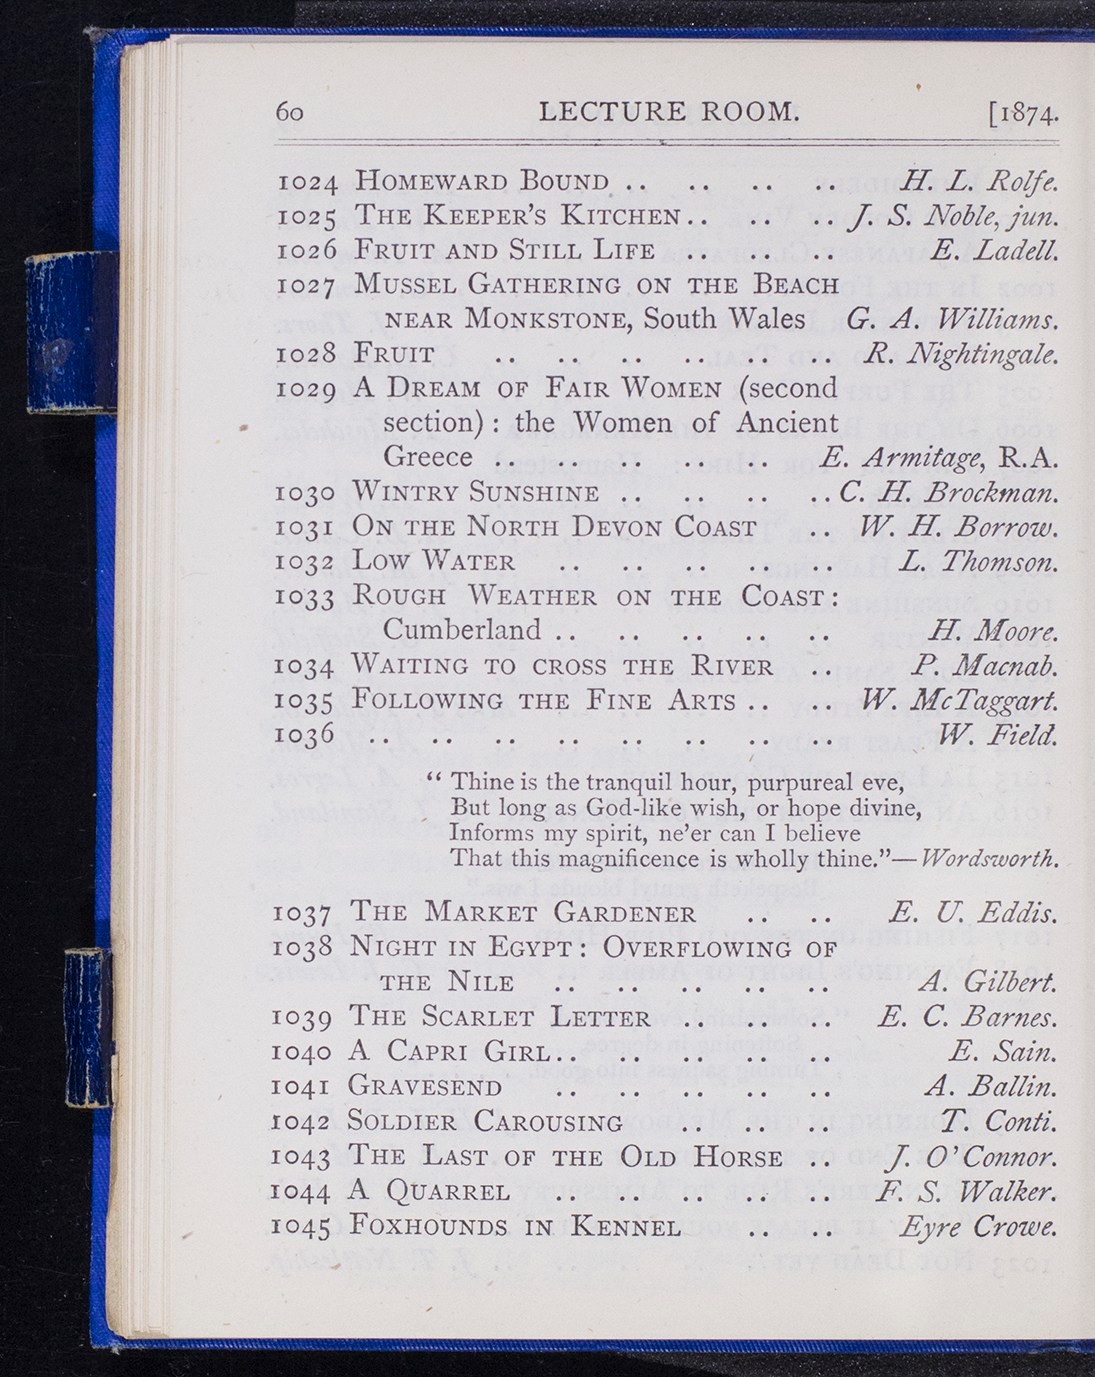 60 LECTURE ROOM. [1874.
1024 HOMEWARD BOUND .. .. .. .. H. L. Rolfe.
1025 THE KEEPER'S KITCHEN .. .. .. J. S. Noble, jun.
1026 FRUIT AND STILL LIFE .. .. .. E. Ladell.
1027 MUSSEL GATHERING ON THE BEACH
NEAR MONKSTONE, South Wales G. A. Williams.
1028 FRUIT .. .. .. .. .. .. R. Nightingale.
1029 A DREAM OF FAIR WOMEN (second
section): the Women of Ancient
Greece .. .. .. .. .. E. Armitage, R.A.
1030 WINTRY SUNSHINE .. .. .. .. C. H. Brockman.
1031 ON THE NORTH DEVON COAST .. W. H. Borrow.
1032 LOW WATER .. .. .. .. .. L. Thomson.
1033 ROUGH WEATHER ON THE COAST:
Cumberland .. .. .. .. .. H. Moore.
1034 WAITING TO CROSS THE RIVER .. P. Macnab.
1035 FOLLOWING THE FINE ARTS .. .. W. McTaggart.
1036 .. .. .. .. .. .. .. W. Field.
“ Thine is the tranquil hour, purpureal eve,
But long as God-like wish, or hope divine,
Informs my spirit, ne'er can I believe
That this magnificence is wholly thine.”—Wordsworth.
1037 THE MARKET GARDENER .. .. E. U. Eddis.
1038 NIGHT IN EGYPT: OVERFLOWING OF
THE NILE .. .. .. .. .. A. Gilbert.
1039 THE SCARLET LETTER .. .. .. E. C. Barnes.
1040 A CAPRI GIRL .. .. .. .. .. E. Sain.
1041 GRAVESEND .. .. .. .. .. A. Ballin.
1042 SOLDIER CAROUSING .. .. .. T. Conti.
1043 THE LAST OF THE OLD HORSE .. J. O'Connor.
1044 A QUARREL .. .. .. .. .. F. S. Walker.
1045 FOXHOUNDS IN KENNEL .. .. Eyre Crowe.